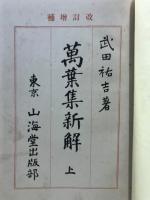 補増訂改
武田祐吉著
萬葉集新解
上
東京 山海堂出版部